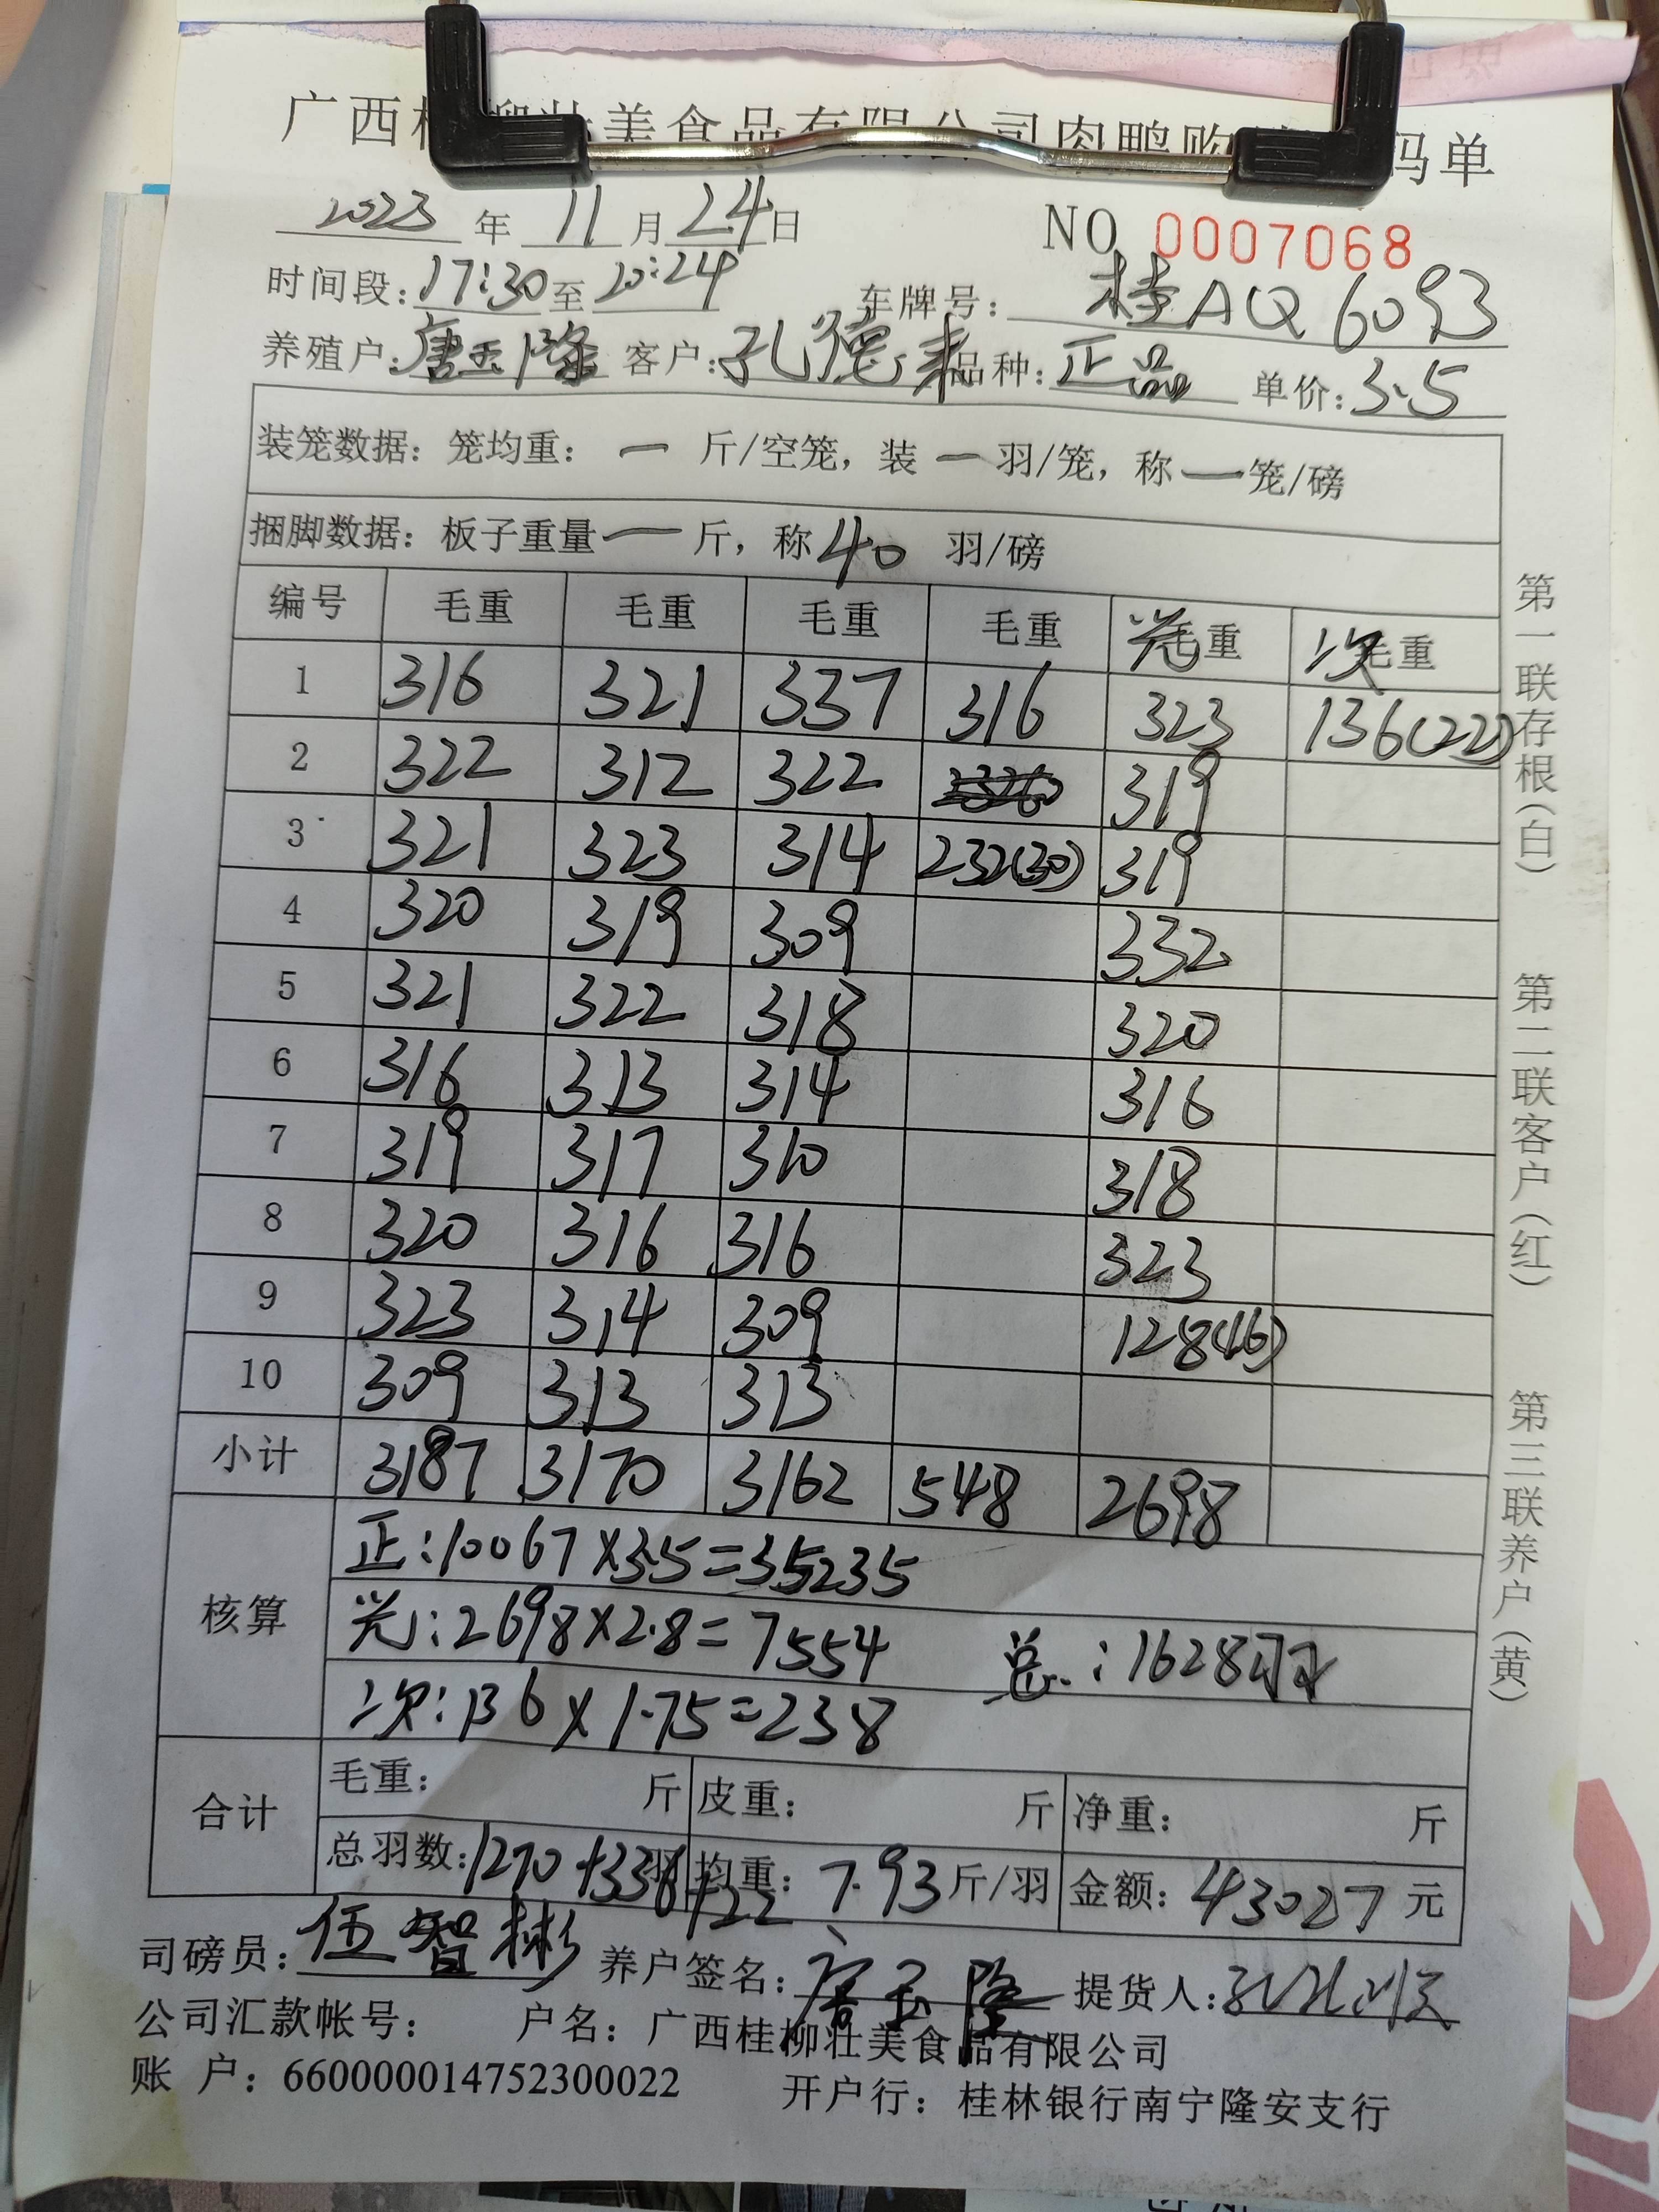 广西 美食品有限公司肉鸭购 码单
2023 年 11 月 24 日 NO 0007068
时间段: 17:30 至 20:24 车牌号: 桂AQ6093
养殖户: 唐玉隆 客户: 孔德来 品种: 正品 单价: 3.5
装笼数据: 笼均重: 一 斤/空笼, 装 一 羽/笼, 称 一 笼/磅
捆脚数据: 板子重量 一 斤, 称 40 羽/磅
编号 毛重 毛重 毛重 毛重 毛重 次 毛重
1 316 321 337 316 323 136(22)
2 322 312 322 319
3 321 323 314 232(30) 319
4 320 319 309 332
5 321 322 318 320
6 316 313 314 316
7 319 317 310 318
8 320 316 316 323
9 323 314 309 128(16)
10 309 313 313
小计 3187 3170 3162 548 2698
核算
正:10067×3.5=35235
:2698×2.8=7554 总:1628羽
次:136×1.75=238
合计
毛重: 斤 皮重: 斤 净重: 斤
总羽数: 1270+336+22 羽 均重: 7.93 斤/羽 金额: 43027 元
司磅员: 伍智彬 养户签名: 唐玉隆 提货人:
公司汇款帐号: 户名: 广西桂柳壮美食品有限公司
账 户: 660000014752300022 开户行: 桂林银行南宁隆安支行
第一联存根(白) 第二联客户(红) 第三联养户(黄)